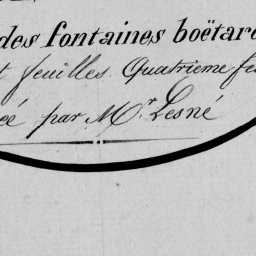 des fontaines boëtard
feuilles. Quatrieme fe
ée par Mr. Lesné